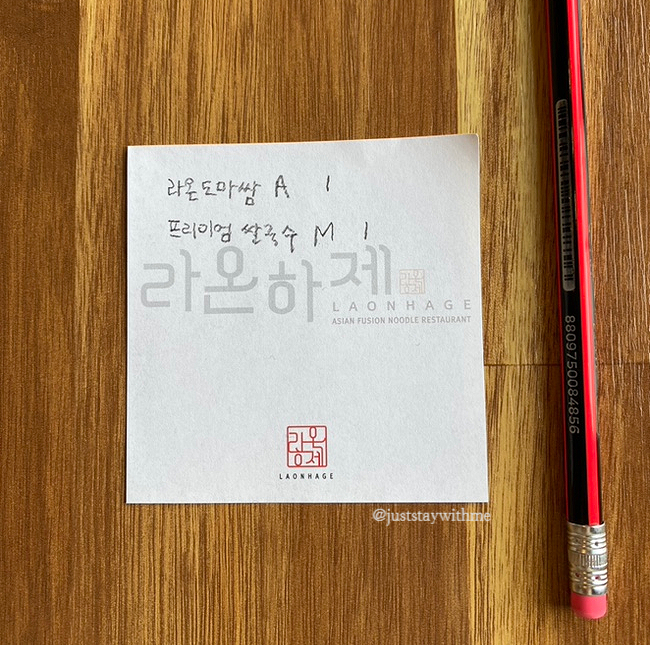 라온도마쌈 A 1
프리미엄 쌀국수 M 1
라온하제 라온하제
LAONHAGE
ASIAN FUSION NOODLE RESTAURANT
라온하제
LAONHAGE
@juststaywithme
8809750084856